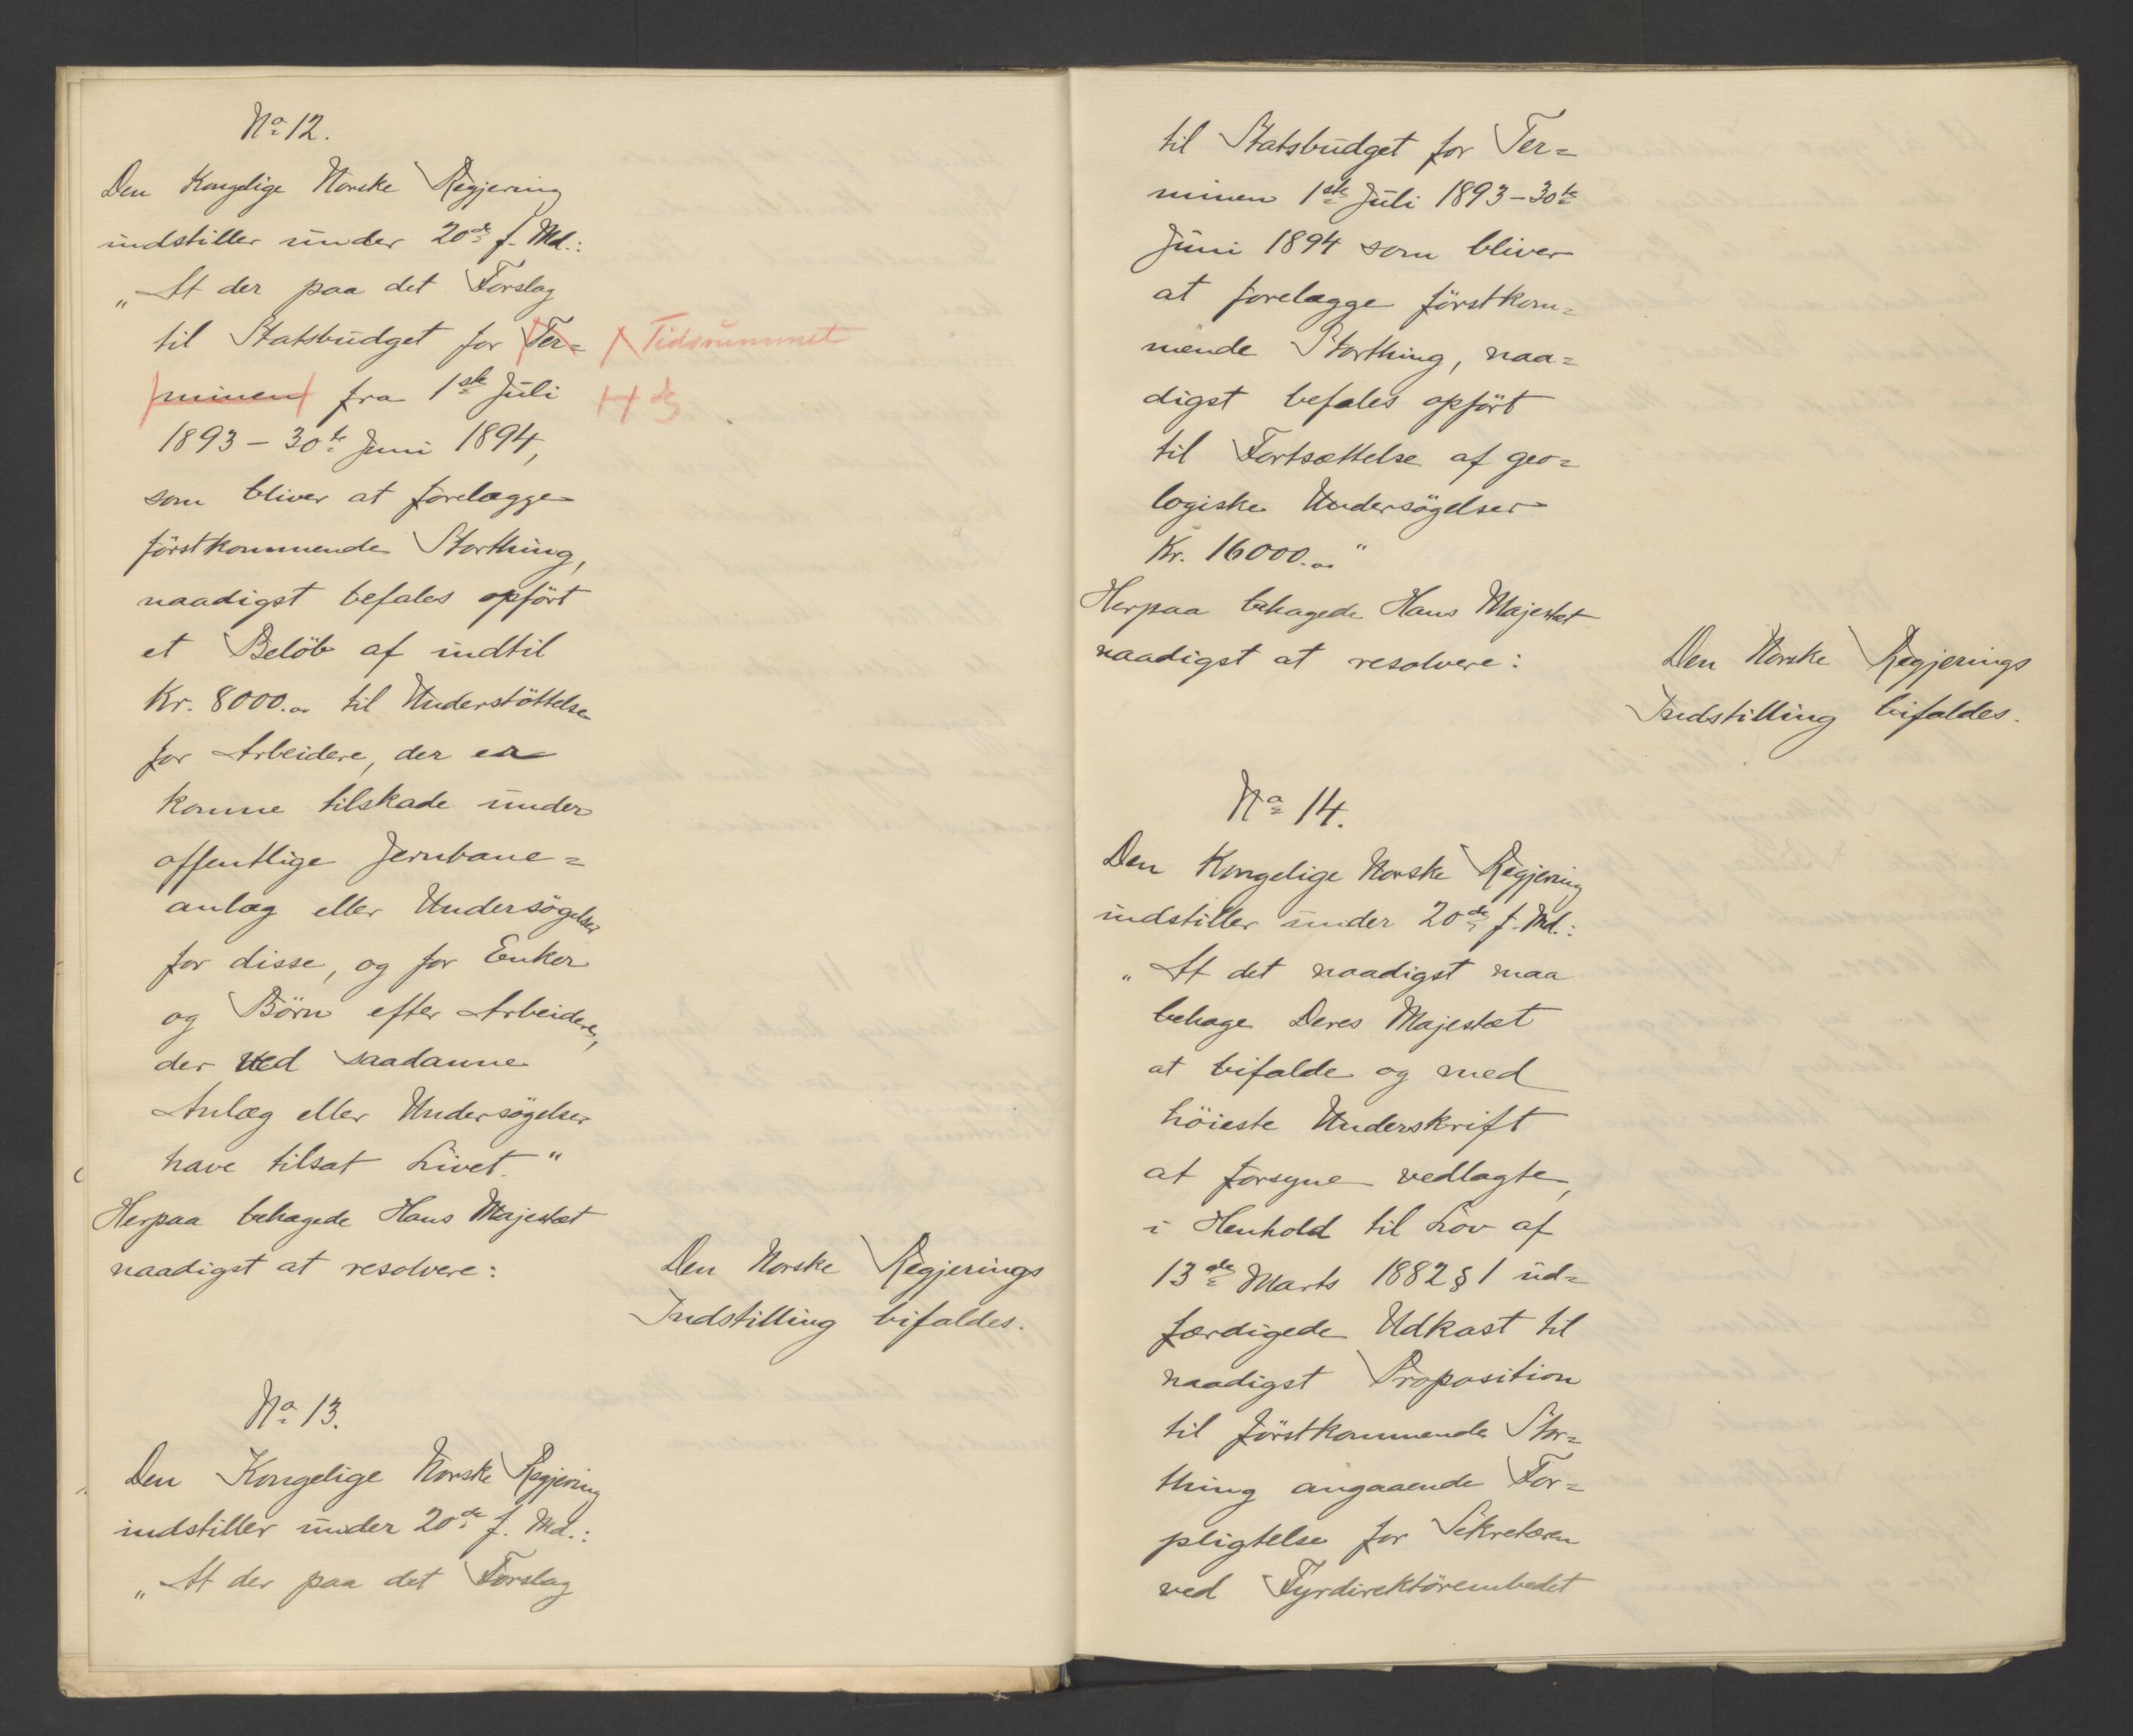 No 12.
Den Kongelige Norske Regjering
indstiller under 20de f. Md.:
„At der paa det Forslag
til Statsbudget for Ter=
minen fra 1ste Juli
Tidsrummet
1893 – 30te Juni 1894,
som bliver at forelægge
förstkommende Storthing,
naadigst befales opfört
et Belöb af indtil
Kr. 8000.00 til Understöttelse
for Arbeidere, der er
komne tilskade under
offentlige Jernbane=
anlæg eller Undersögelser
for disse, og for Enker
og Börn efter Arbeidere,
der ved saadanne
Anlæg eller Undersögelser
have tilsat Livet."
Herpaa behagede Hans Majestæt
naadigst at resolvere:
Den Norske Regjerings
Indstilling bifaldes.
No 13.
Den Kongelige Norske Regjering
indstiller under 20de f. Md.:
„At der paa det Forslag
til Statsbudget for Ter=
minen 1ste Juli 1893 – 30te
Juni 1894 som bliver
at forelægge förstkom=
mende Storthing, naa=
digst befales opfört
til Fortsættelse af geo=
logiske Undersögelser
Kr. 16000.00"
Herpaa behagede Hans Majestæt
naadigst at resolvere:
Den Norske Regjerings
Indstilling bifaldes.
No 14.
Den Kongelige Norske Regjering
indstiller under 20de f. Md.:
„At det naadigst maa
behage Deres Majestæt
at bifalde og med
höieste Underskrift
at forsyne vedlagte,
i Henhold til Lov af
13de Marts 1882 § 1 ud=
færdigede Udkast til
naadigst Proposition
til förstkommende Stor=
thing angaaende For=
pligtelse for Sekretæren
ved Fyrdirektörembedet